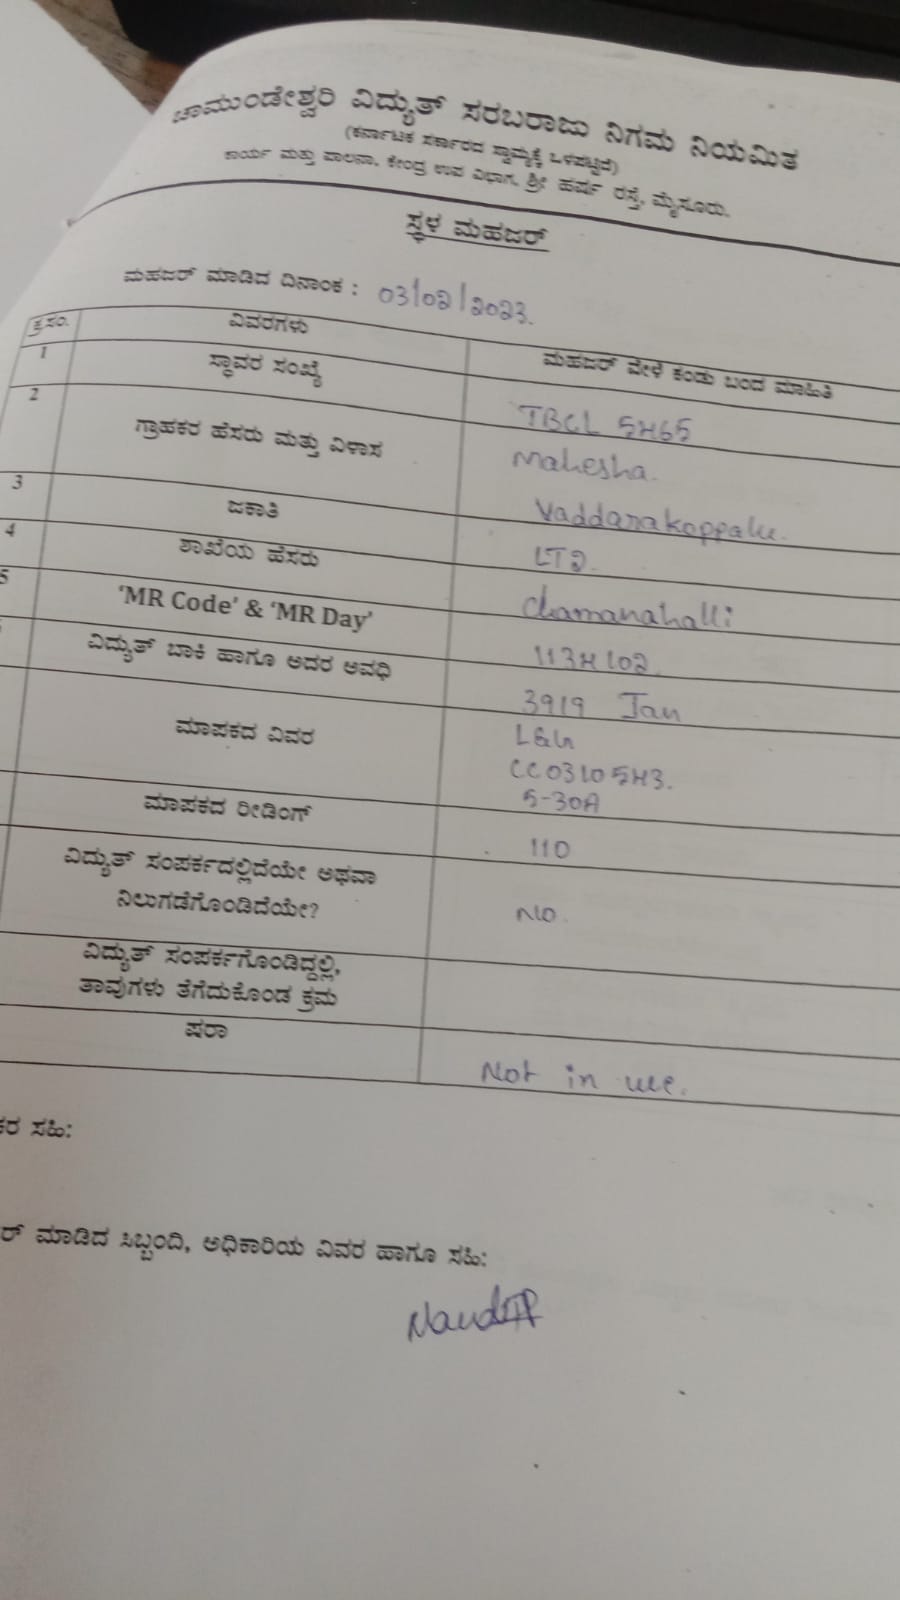 ಚಾಮುಂಡೇಶ್ವರಿ ವಿದ್ಯುತ್ ಸರಬರಾಜು ನಿಗಮ ನಿಯಮಿತ
(ಕರ್ನಾಟಕ ಸರ್ಕಾರದ ಸ್ವಾಮ್ಯಕ್ಕೆ ಒಳಪಟ್ಟಿದೆ)
ಕಾರ್ಯ ಮತ್ತು ಪಾಲನಾ, ಕೇಂದ್ರ ಉಪ ವಿಭಾಗ, ಶ್ರೀ ಹರ್ಷ ರಸ್ತೆ, ಮೈಸೂರು.
ಸ್ಥಳ ಮಹಜರ್
ಮಹಜರ್ ಮಾಡಿದ ದಿನಾಂಕ : 03/02/2023.
ಕ್ರ.ಸಂ. ವಿವರಗಳು ಮಹಜರ್ ವೇಳೆ ಕಂಡು ಬಂದ ಮಾಹಿತಿ
1 ಸ್ಥಾವರ ಸಂಖ್ಯೆ TBCL 5465
2 ಗ್ರಾಹಕರ ಹೆಸರು ಮತ್ತು ವಿಳಾಸ Mahesha.
Vaddarakoppalu.
3 ಜಕಾತಿ LT2.
4 ಶಾಖೆಯ ಹೆಸರು Chamanahalli
5 'MR Code' & 'MR Day' 1134102.
ವಿದ್ಯುತ್ ಬಾಕಿ ಹಾಗೂ ಅದರ ಅವಧಿ 3919 Jan
ಮಾಪಕದ ವಿವರ L&G
CC0310543.
5-30A
ಮಾಪಕದ ರೀಡಿಂಗ್ 110
ವಿದ್ಯುತ್ ಸಂಪರ್ಕದಲ್ಲಿದೆಯೇ ಅಥವಾ
ನಿಲುಗಡೆಗೊಂಡಿದೆಯೇ? NO.
ವಿದ್ಯುತ್ ಸಂಪರ್ಕಗೊಂಡಿದ್ದಲ್ಲಿ,
ತಾವುಗಳು ತೆಗೆದುಕೊಂಡ ಕ್ರಮ
ಷರಾ Not in use.
ಕರ ಸಹಿ:
ರ್ ಮಾಡಿದ ಸಿಬ್ಬಂದಿ, ಅಧಿಕಾರಿಯ ವಿವರ ಹಾಗೂ ಸಹಿ: